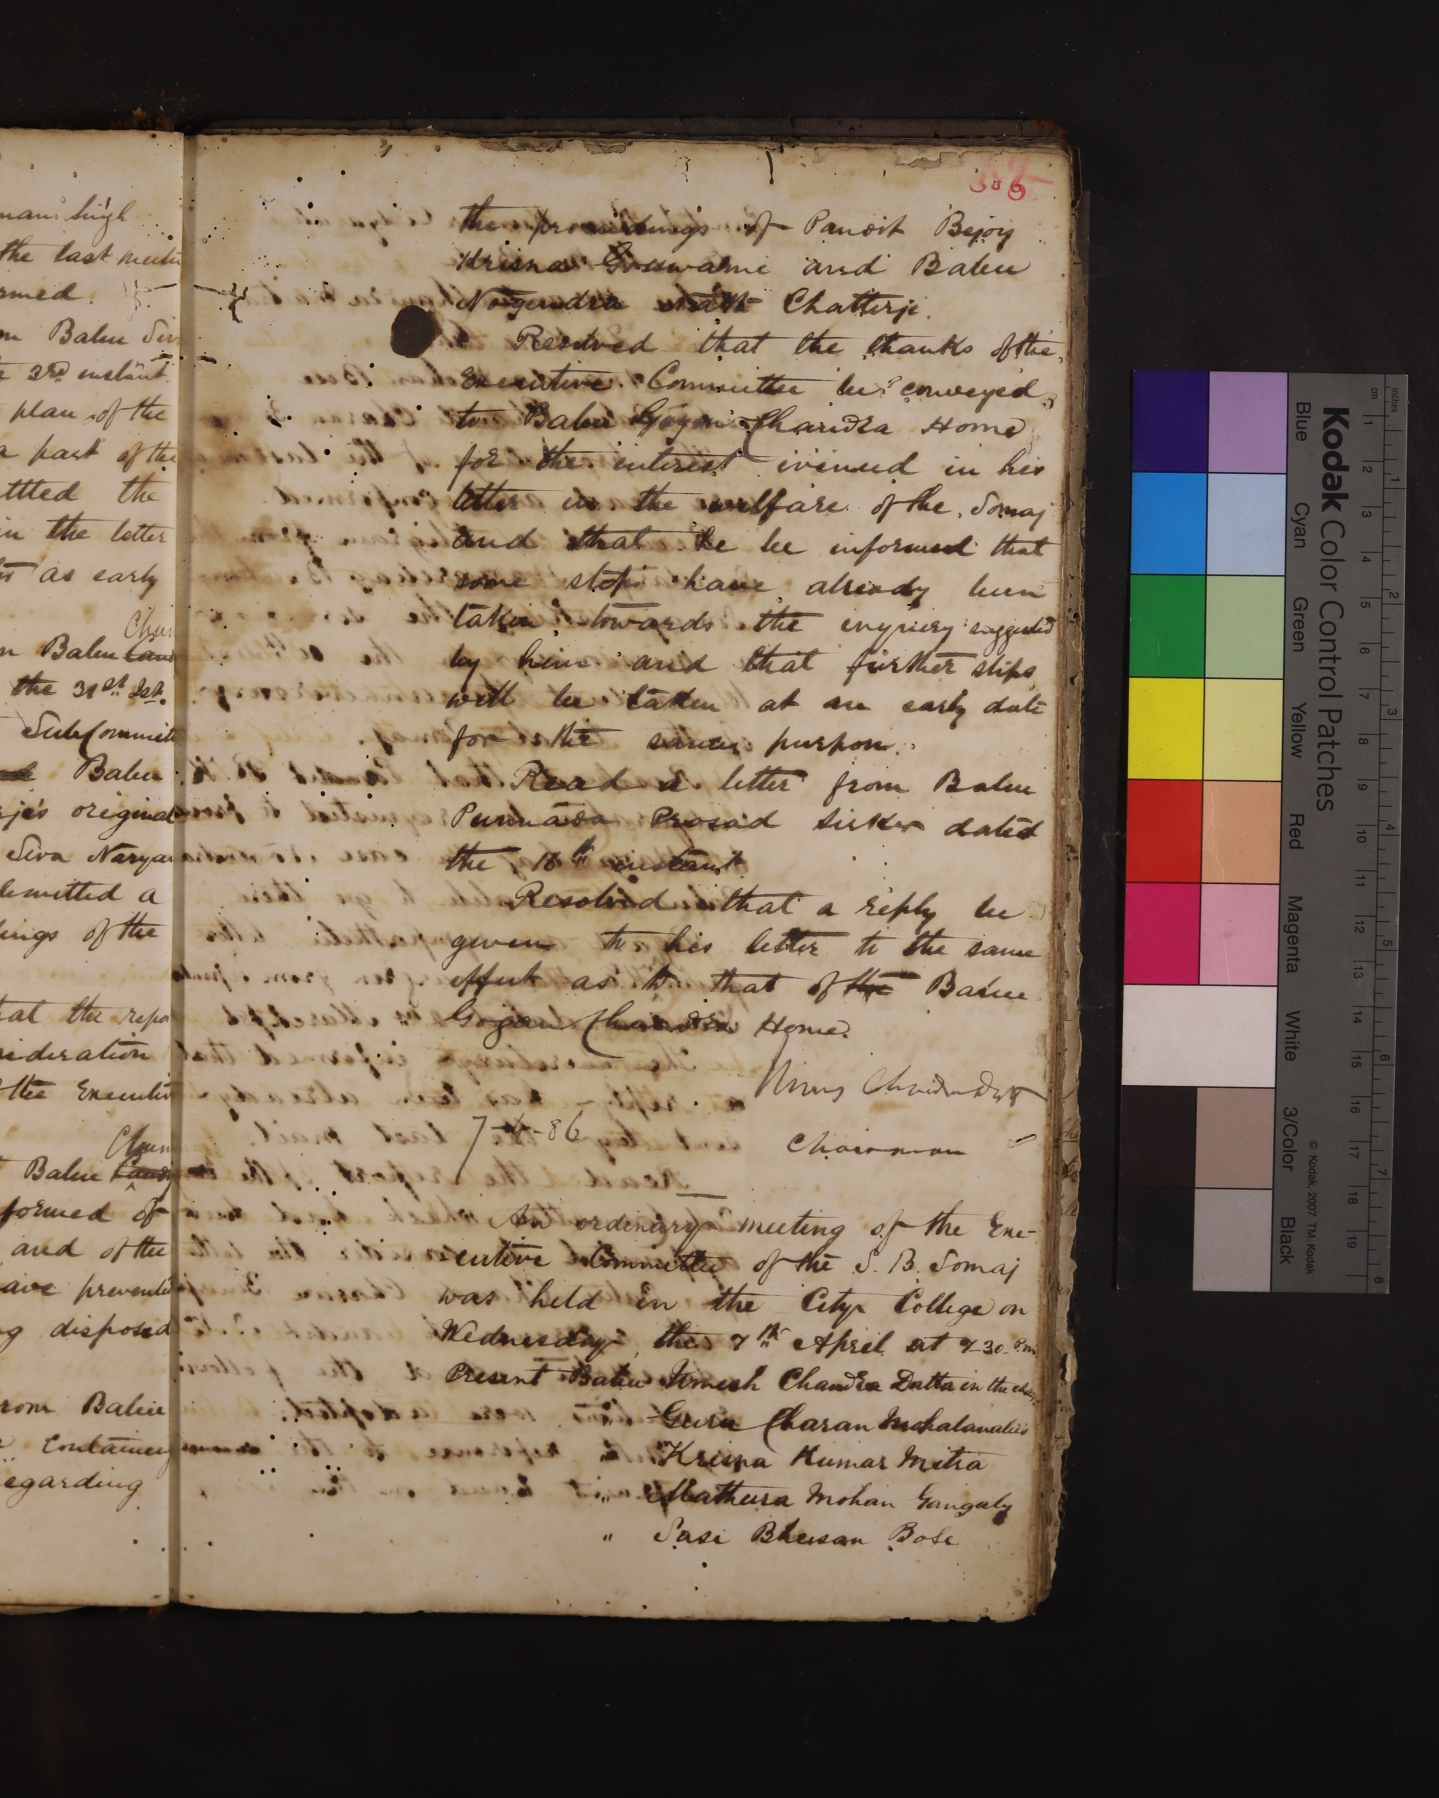 man singh
the last meetin
rmed.
m Babu Siv
e 3rd instant.
plan of the
a part of the
ittled the
in the letter
as early
Chun
n Babu
the 31st Ist.
Subcommitt
Babu
rje's original
Siva Naryan
bmitted a
dings of the
hat the repo
nsideration
f the Executiv
Chun
Babu
formed of
and of the
ave preventi
ng disposed
from Babu
containing
egarding
306
the proceedings of Pandit Bejoy
Krisna Goswami and Babu
Nogendra Nath Chatterje.
Resolved that the thanks of the
Executive Committee be conveyed
to Babu Gogon Chandra Home
for the interest evinced in his
letter in the welfare of the Somaj
and that he be informed that
some steps have already been
taken towards the inquiry suggested
by him and that further steps
will be taken at an early date
for the same purpose.
Read a letter from Babu
Punnada Prosad Sirkar dated
the 16th instant
Resolved that a reply be
given to his letter to the same
effect as to that of the Babu
Gogan Chandra Home.
Umes Chandra Datta
7-4-86
Chairman
An ordinary meeting of the Exe-
cutive Committee of the S. B. Somaj
was held in the City College on
Wednesday, the 7th April at 7-30 P.m
Present Babu Umesh Chandra Datta in the chair
Guru Charan Mohalanabis
Krisna Kumar Mitra
" Mathura Mohan Ganguly
" Sasi Bhusan Bose
Kodak Color Control Patches
Blue Cyan Green Yellow Red Magenta White 3/Color Black
© Kodak, 2007 TM: Kodak
inches 1 2 3 4 5 6 7 8
cm 1 2 3 4 5 6 7 8 9 10 11 12 13 14 15 16 17 18 19